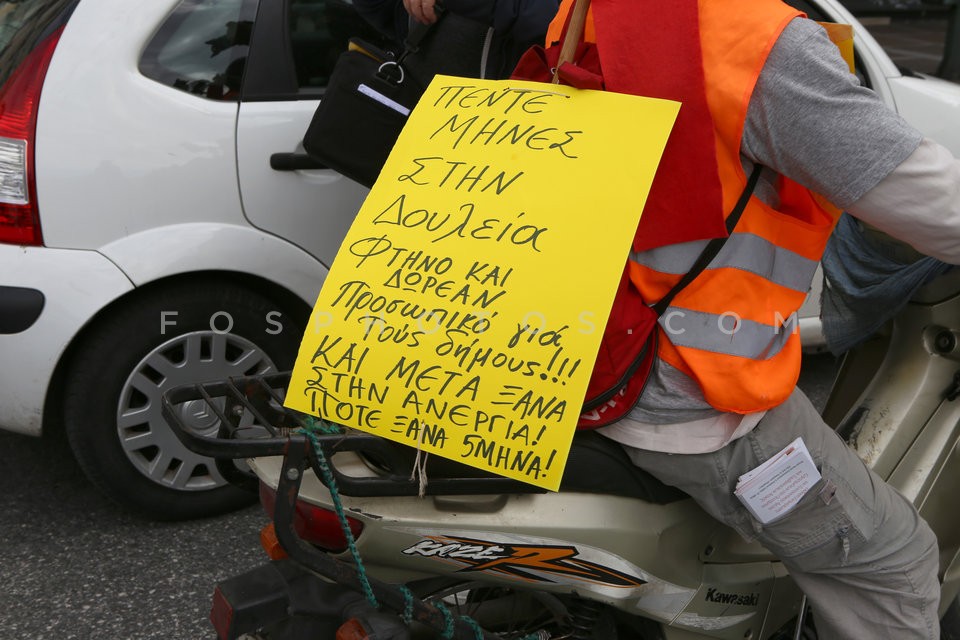 ΠΕΝΤΕ
ΜΗΝΕΣ
ΣΤΗΝ
Δουλεία
ΦΤΗΝΟ ΚΑΙ
ΔΩΡΕΑΝ
Προσωπικό γιά
Τους δήμους!!!
ΚΑΙ ΜΕΤΑ ΞΑΝΑ
ΣΤΗΝ ΑΝΕΡΓΙΑ!
ΠΟΤΕ ΞΑΝΑ 5ΜΗΝΑ!
FOSPHOTOS.COM
KAZE R
Kawasaki